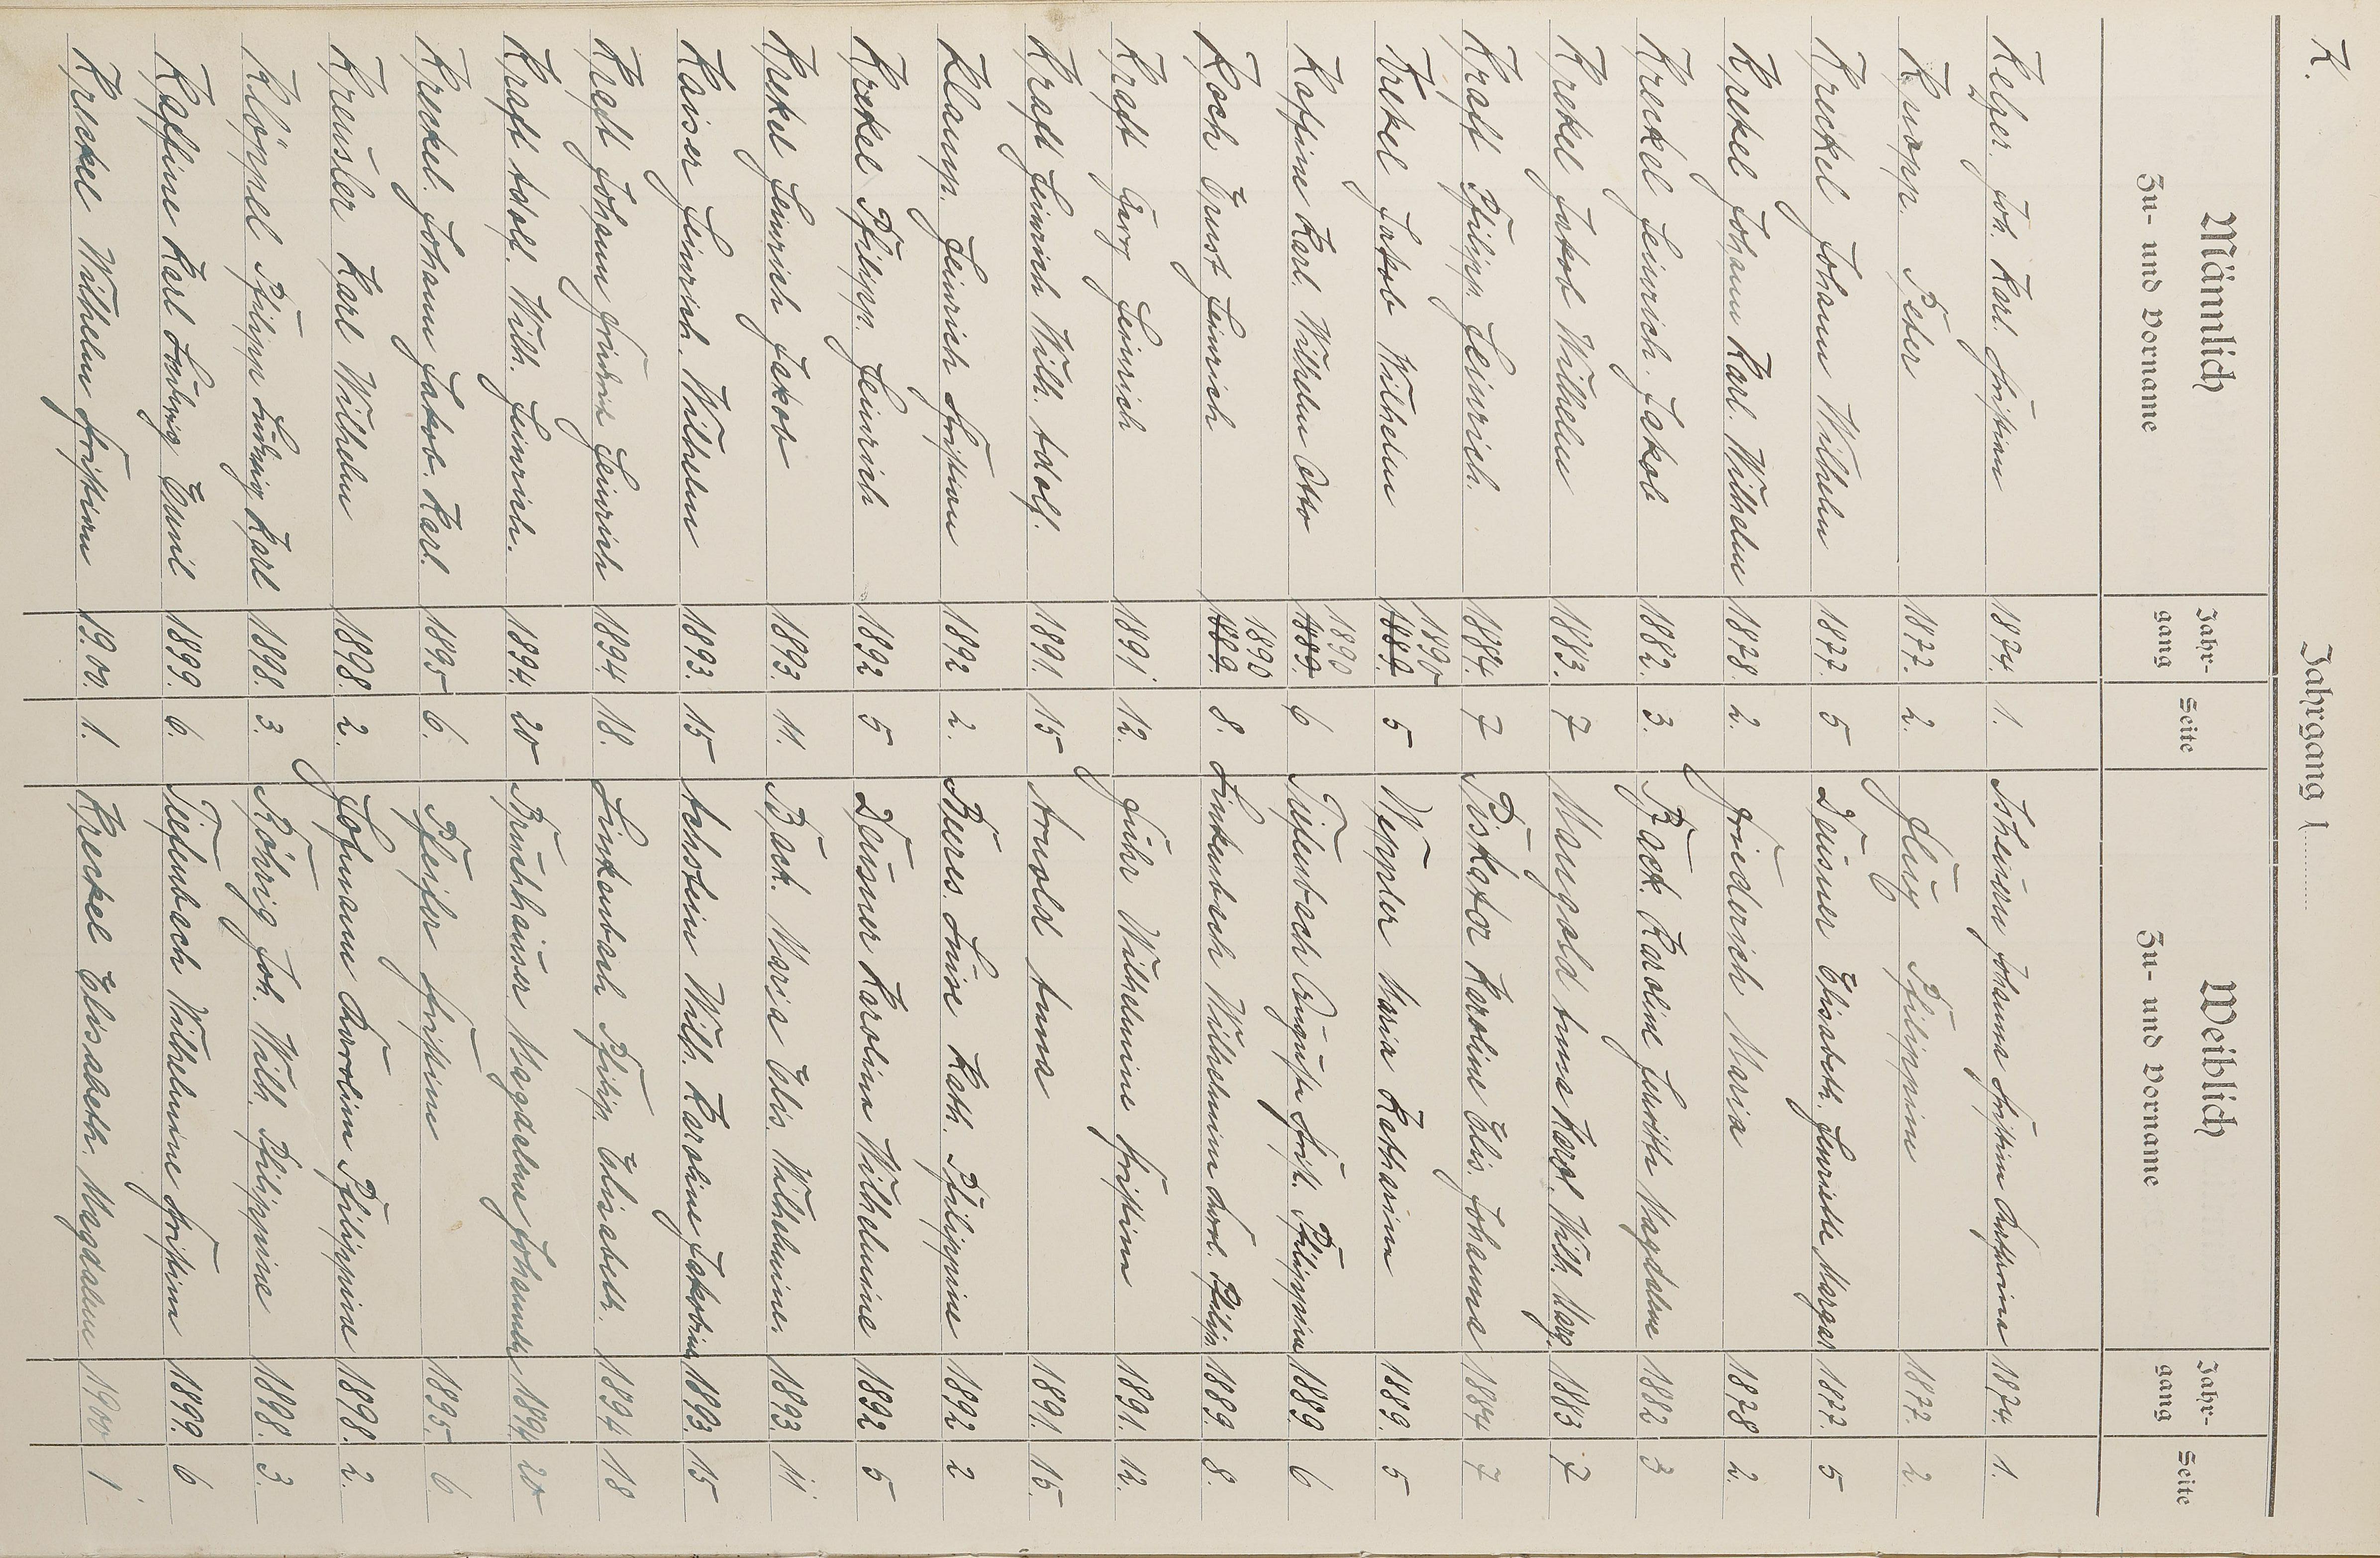 K.
Jahrgang 1
Männlich Weiblich
Zu- und Vorname Jahr- Seite Zu- und Vorname Jahr- Seite
gang gang
Joh. Karl. Christian 1874. 1. Johanna Christine Catharina 1874. 1.
Knopp. Peter 1877. 2. Philippine 1877. 2.
Kreckel Johann Wilhelm 1877. 5 Deusner Elisabeth. Henriette Margar 1877. 5
Krekel Johann Karl. Wilhelm 1878. 2. Friederich Maria 1878 2.
Kreckel Heinrich. Jakob 1882. 3. Back. Karoline Judith Magdalene 1882. 3
Krekel Jakob Wilhelm 1883. 7 Maugold Anna Karol. Wilh. Marg. 1883 7
Kraft Philipp. Heinrich. 1884. 7 Piskator Karoline Elis. Johanna 1884 7
1890
Krekel Jakob Wilhelm 1889. 5 Weppler Maria Katharina 1889. 5
1890
Karl. Wilhelm Otto 1889. 6 Tiefenbach Auguste Christ. Philippine 1889. 6
1890
Koch Ernst Heinrich 1889. 8. Linkenbach Wilhelmine Karol. Philipp. 1889. 8.
Kradt Georg Heinrich 1891. 12. Führ Wilhelmine Christina 1891. 12.
Kradt Heinrich Wilh. Adolf. 1891. 15 Arnold Anna 1891. 15.
Klamp. Heinrich Christian 1892 2. Luise Kath. Philippine 1892. 2
Krekel Philipp. Heinrich 1892 5 Deusner Karolina Wilhelmine 1892 5
Krekel Heinrich Jakob 1893. 11. Back. Maria Elis. Wilhelmine. 1893. 11.
Kaiser Heinrich. Wilhelm 1893. 15 Achstein Wilh. Karoline Jakobine 1893. 15
Kradt Johann Friedrich Heinrich 1894 18. Linkenbach Philip. Elisabeth. 1894 18
Kraft Adolf. Wilh. Heinrich. 1894. 20 Brünhäuser Magdalene Johannette 1894. 20
Kreckel. Johann Jakob. Karl. 1895 6. Pfeifer Christine 1895. 6.
Kreusler Karl Wilhelm 1898. 2. Hofmann Karoline Philippine 1898. 2.
Klöppel Philipp Ludwig Karl 1898. 3. Röhrig Joh. Wilh. Philippine 1898. 3.
Karl Ludwig Emil 1899. 6. Tiefenbach Wilhelmine Christina 1899. 6
Kreckel Wilhelm Christian 1900. 1. Kreckel Elisabeth. Magdalene 1900 1